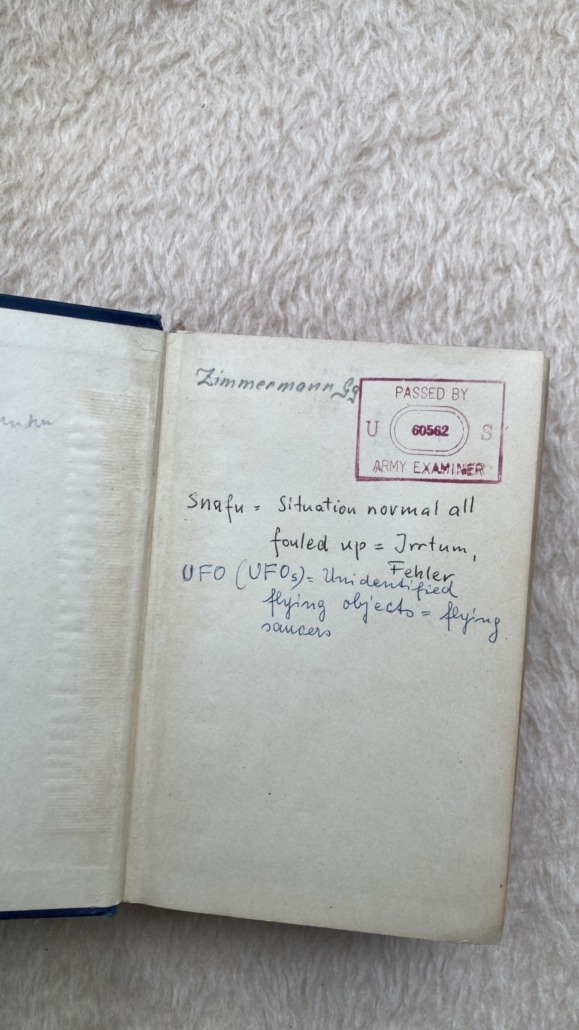 Zimmermann Gg
PASSED BY
U 60562 S
ARMY EXAMINER
Snafu = Situation normal all
fouled up = Irrtum,
Fehler
UFO (UFOs) = Unidentified
flying objects = flying
saucers